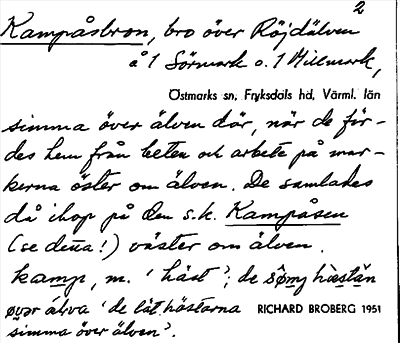 2
Kampåsbron, bro över Röjdälven
å 1 Sörmark o. 1 Millmark,
Östmarks sn, Fryksdals hd, Värml. län
simma över älven där, när de för-
des hem från beten och arbete på mar-
kerna öster om älven. De samlades
då ihop på den s.k. Kampåsen
(se detta!) väster om älven.
kamp, m. 'häst'; de
'de lät hästarna RICHARD BROBERG 1951
simma över älven'.